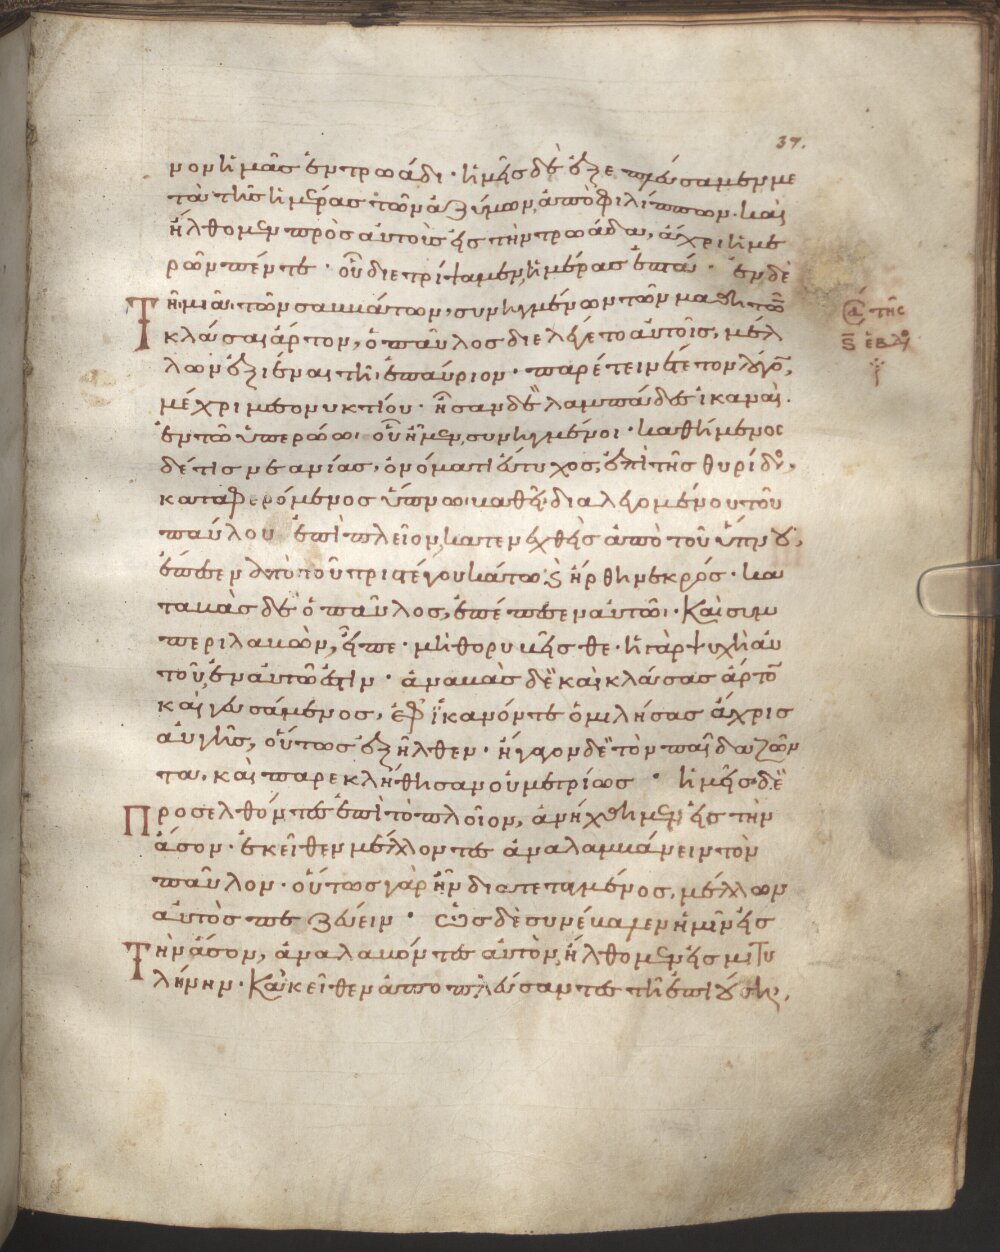 37.
νον ἡμᾶς ἐν τρωάδι· ἡμεῖς δὲ ἐξεπλεύσαμεν με
τὰ τὰς ἡμέρας τῶν ἀζύμων, ἀπὸ φιλίππων· καὶ
ἤλθομεν πρὸς αὐτοὺς εἰς τὴν τρωάδα, ἄχρι ἡμε
ρῶν πέντε· οὗ διετρίψαμεν ἡμέρας ἑπτά· ἐν δὲ
Τῆ μιᾶ τῶν σαββάτων, συνηγμένων τῶν μαθητῶν
κλάσαι ἄρτον, ὁ παῦλος διελέγετο αὐτοῖς, μέλ
λων ἐξιέναι τῆ ἐπαύριον· παρέτεινέ τε τὸν λόγον,
μέχρι μεσονυκτίου· ἦσαν δὲ λαμπάδες ἱκαναὶ
ἐν τῶ ὑπερώω· οὗ ἦμεν συνηγμένοι· καθήμενος
δέ τις νεανίας, ὀνόματι εὔτυχος, ἐπὶ τῆς θυρίδος,
καταφερόμενος ὕπνω βαθεῖ· διαλεγομένου τοῦ
παύλου ἐπὶ πλεῖον, κατενεχθεὶς ἀπὸ τοῦ ὕπνου,
ἔπεσεν ἀπὸ τοῦ τριστέγου κάτω· καὶ ἤρθη νεκρός· κα
ταβὰς δὲ ὁ παῦλος, ἐπέπεσεν αὐτῶ· Καὶ συμ
περιλαβὼν, εἶπε· μὴ θορυβεῖσθε· ἡ γὰρ ψυχὴ αὐ
τοῦ, ἐν αὐτῶ ἐστιν· ἀναβὰς δὲ καὶ κλάσας ἄρτον
καὶ γευσάμενος, ἐφ ἱκανόν τε ὁμιλήσας ἄχρις
αὐγῆς, οὕτως ἐξῆλθεν· ἤγαγον δὲ τὸν παῖδα ζῶν
τα, καὶ παρεκλήθησαν οὐ μετρίως· ἡμεῖς δὲ
Προσελθόντες ἐπὶ τὸ πλοῖον, ἀνήχθημεν εἰς τὴν
ἄσον· ἐκεῖθεν μέλλοντες ἀναλαμβάνειν τὸν
παῦλον· οὕτως γὰρ ἦν διατεταγμένος, μέλλων
αὐτὸς πεζεύειν· ὡς δὲ συνέβαλεν ἡμῖν εἰς
Τὴν ἄσον, ἀναλαβόντες αὐτὸν, ἤλθομεν εἰς μιτυ
λήνην· Κἀκεῖθεν ἀποπλεύσαντες τῆ ἐπιούση,
τῆς